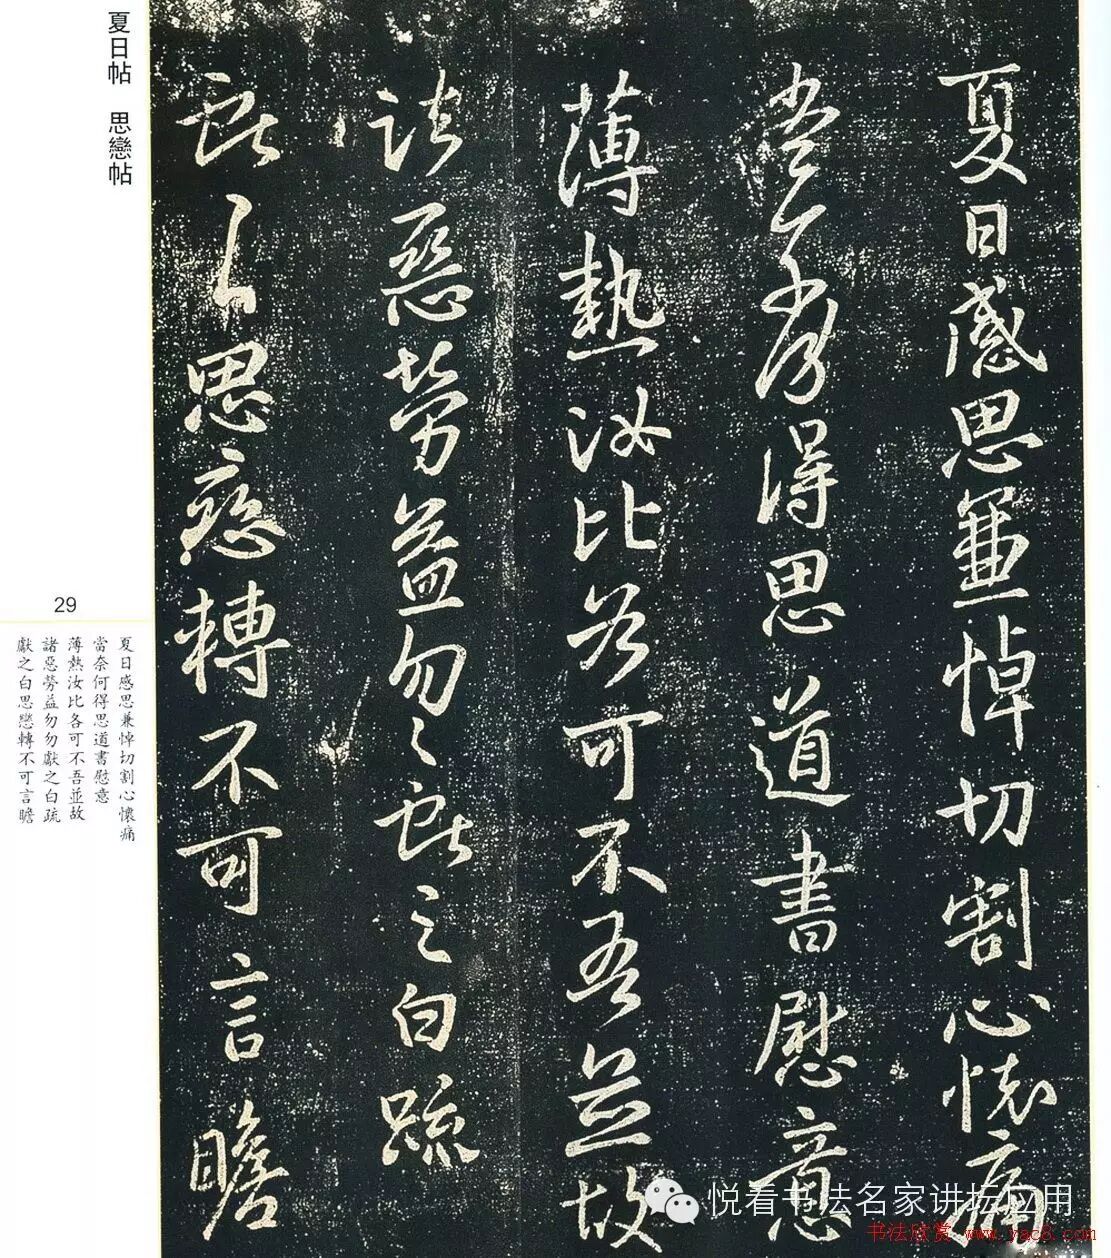 夏日帖　思戀帖
夏日感思兼悼切割心懷痛
當奈何得思道書慰意
薄熱汝比各可不吾並故
諸惡勞益勿勿獻之白疏
獻之白思戀轉不可言瞻
29
夏日感思兼悼切割心懷痛
當奈何得思道書慰意
薄熱汝比各可不吾並故
諸惡勞益勿勿獻之白疏
獻之白思戀轉不可言瞻
悦看书法名家讲坛应用
书法欣赏 www.yac8.com